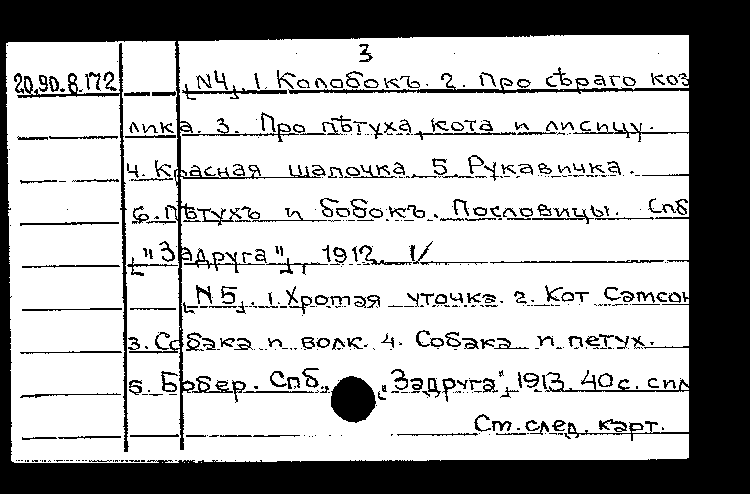 3
20.90.8.172 [N4]. 1. Колобокъ. 2. Про сѣраго коз
лика. 3. Про пѣтуха, кота и лисицу.
4. Красная шапочка. 5. Рукавичка.
6. Пѣтухъ и бобокъ. Пословицы. Спб
["Задруга"], 1912. V
[N5]. 1. Хромая уточка. 2. Кот Самсон
3. Собака и волк. 4. Собака и петух.
5. Бобер. Спб., ["Задруга"], 1913. 40с. спл
Ст. след. карт.